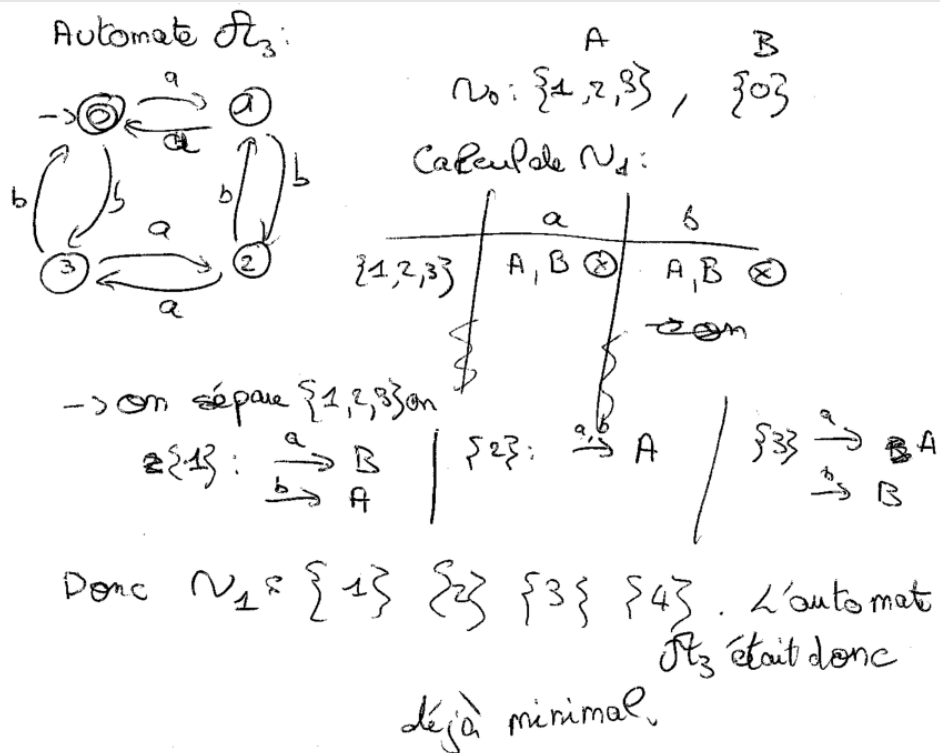 Automate A₃:
A B
~₀: {1,2,3}, {0}
a
-> 0 1
a
b b b b
a
3 2
a
Calcul de ~₁:
a b
{1,2,3} A, B ⊗ A, B ⊗
-> on sépare {1,2,3} on
{1}: a→ B {2}: a,b→ A {3} a→ A
b→ A b→ B
Donc ~₁ : {1} {2} {3} {4}. L'automate
A₃ était donc
déjà minimal.